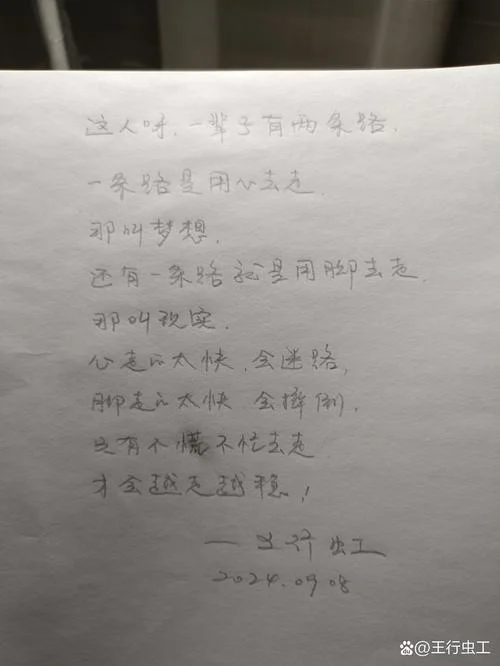 这人呀，一辈子有两条路，
一条路是用心去走，
那叫梦想，
还有一条路就是用脚去走，
那叫现实，
心走的太快，会迷路，
脚走的太快 会摔倒，
只有不慌不忙去走
才会越走越稳！
——王行虫工
2024.09.08
@王行虫工